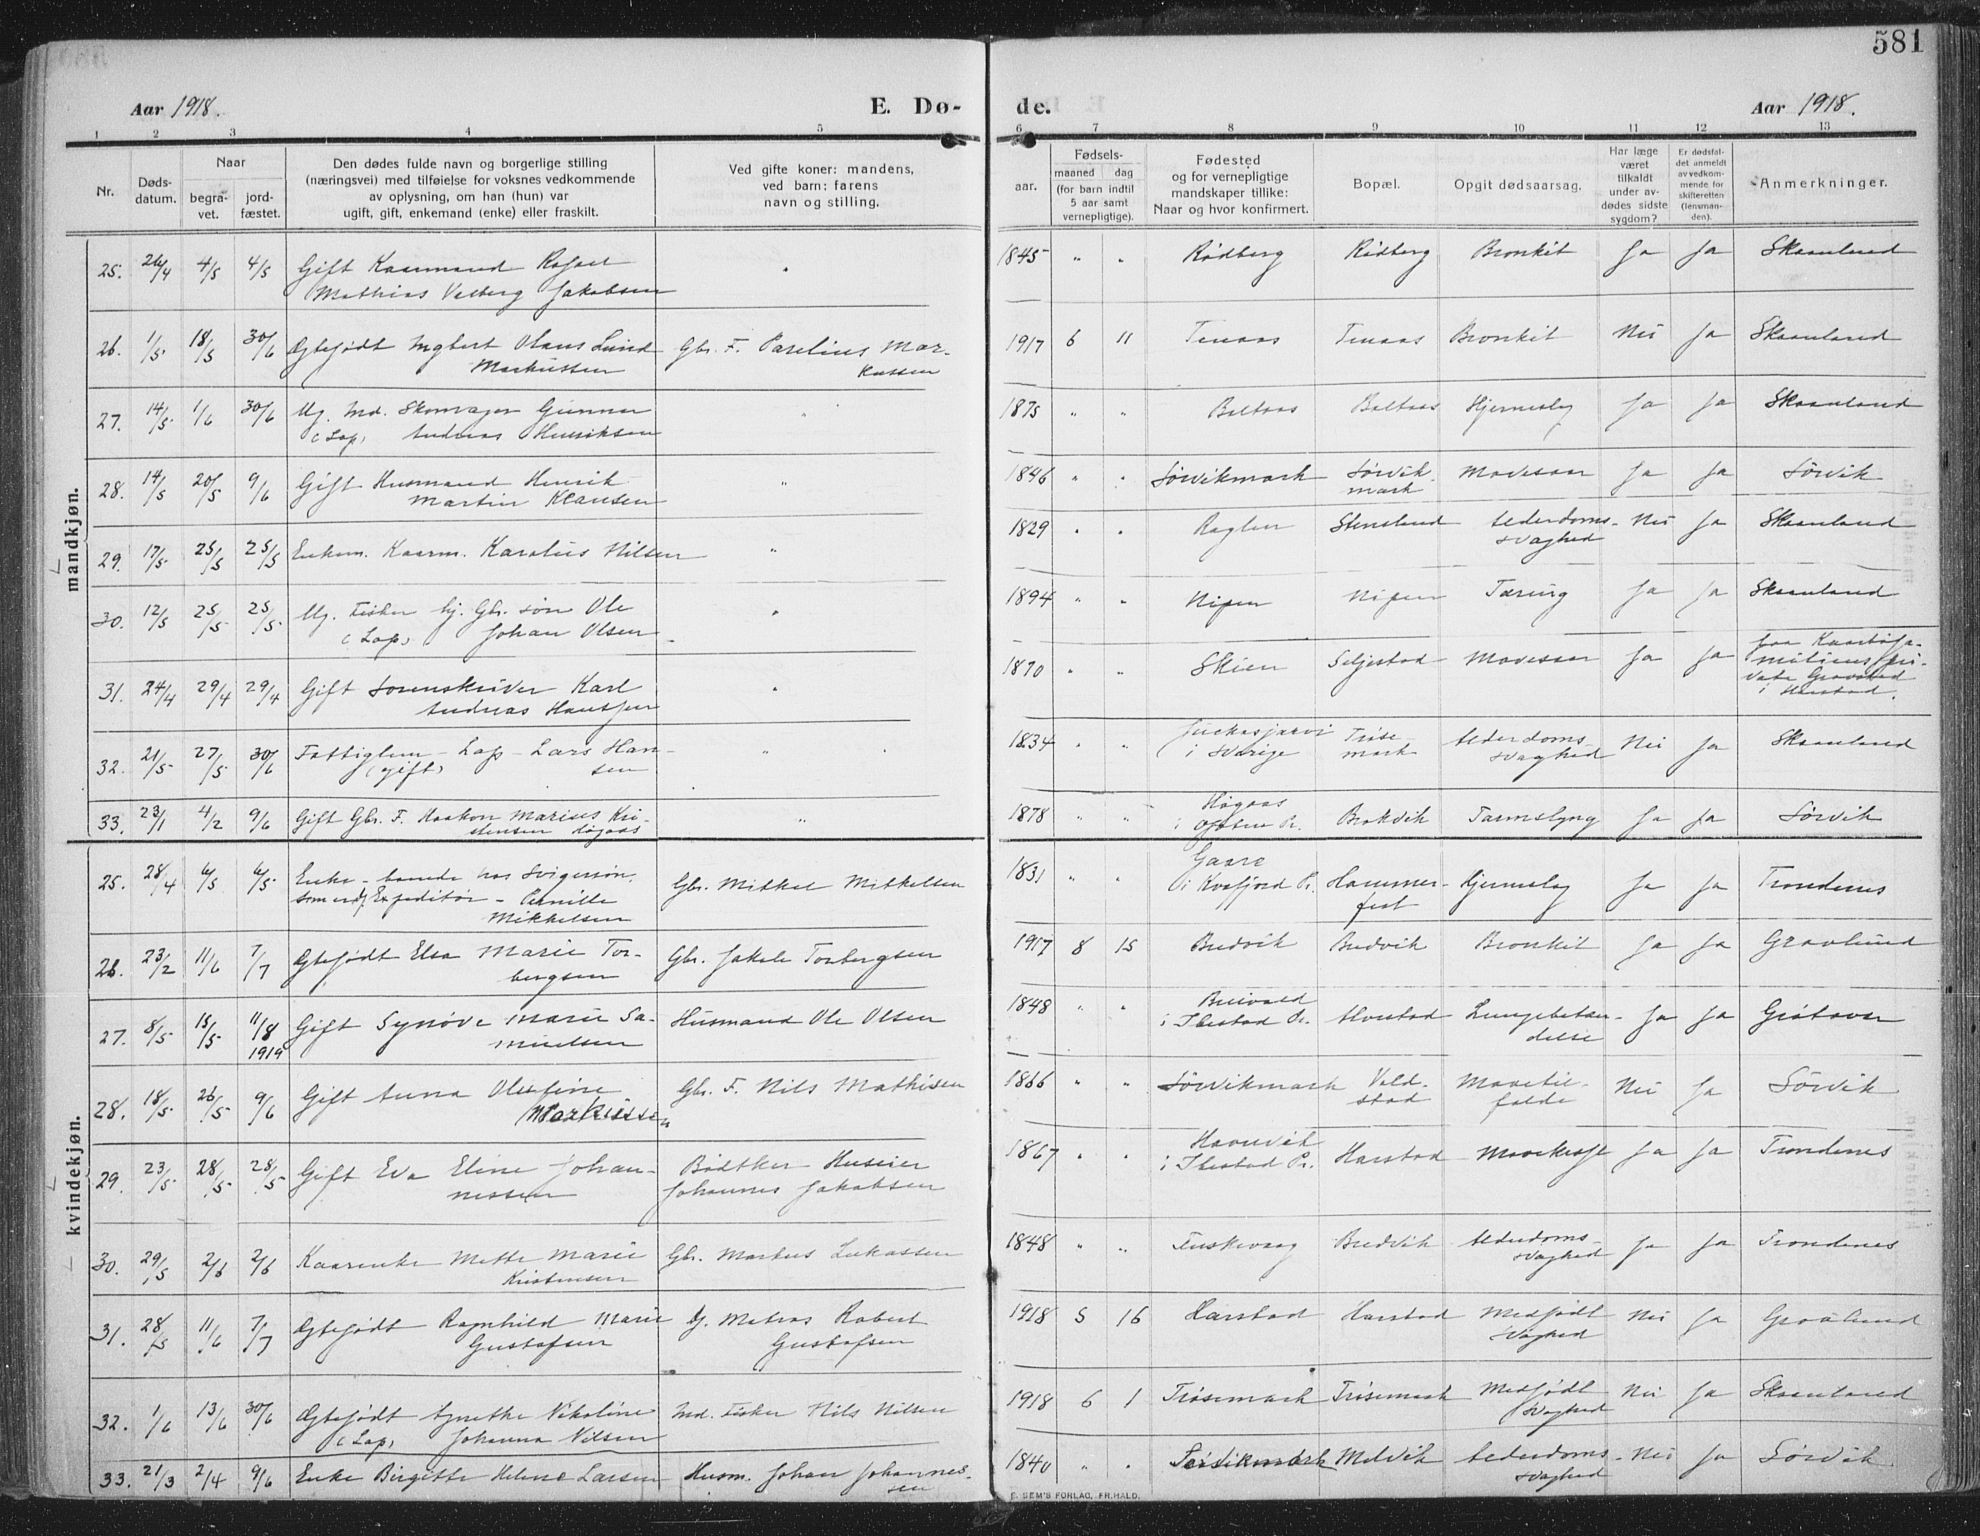 581
Aar 1918. E. Dø- de. Aar 1918.
1 2 3 4 5 6 7 8 9 10 11 12 13
Nr.
Døds-
datum.
Naar
begra-
vet.
jord-
fæstet.
Den dødes fulde navn og borgerlige stilling
(næringsvei) med tilføielse for voksnes vedkommende
av oplysning, om han (hun) var
ugift, gift, enkemand (enke) eller fraskilt.
Ved gifte koner: mandens,
ved barn: farens
navn og stilling.
aar.
Fødsels-
maaned dag
(for barn indtil
5 aar samt
vernepligtige).
Fødested
og for vernepligtige
mandskaper tillike:
Naar og hvor konfirmert.
Bopæl.
Opgit dødsaarsag.
Har læge
været
tilkaldt
under av-
dødes sidste
sygdom?
Er dødsfal-
det anmeldt
av vedkom-
mende for
skifteretten
(lensman-
den).
Anmerkninger.
mandkjøn.
25. 26/4 4/5 4/5 Gift Kaarmand Rafael " 1845 " " Rødberg Rødberg Bronkit Ja Ja Skaanland
Mathias Valberg Jakobsen
26. 1/5 18/5 30/6 Ægtefødt Ingbert Olaus Lund Gbr. F. Parelius Mar- 1917 6 11 Tenaas Tenaas Bronkit Nei Ja Skaanland
Markussen kussen
27. 14/5 1/6 30/6 Ug. Ind. Skomager Gunnar " 1875 " " Boltaas Boltaas Hjerneslag Ja Ja Skaanland
(Lap) Andreas Henriksen
28. 14/5 20/5 9/6 Gift Husmand Henrik " 1846 " " Sørvikmark Sørvik- Mavesaar Ja Ja Sørvik
Martin Klausen mark
29. 17/5 25/5 25/5 Enkem. Kaarm. Karolius Nilsen " 1829 " " Stensland Alderdoms- Nei Ja Skaanland
svaghed
30. 12/5 25/5 25/5 Ug. Fisker hj. Gbr. søn Ole " 1894 " " Nipen Nipen Tæring Ja Ja Skaanland
(Lap) Johan Olsen
31. 24/4 29/4 29/4 Gift Sorenskriver Karl " 1870 " " Skien Seljestad Mavesaar Ja Ja paa Kaarbøfa-
Andreas Hanssen miliens pri-
vate Gravsted
i Harstad.
32. 21/5 27/5 30/6 Fattiglem - Lap - Lars Han- " 1834 " " Juckasjarvi Trøse- Alderdoms- Nei Ja Skaanland
(gift) sen i Sverige mark svaghed
33. 23/1 4/2 9/6 Gift Gbr. F. Haakon Marius Kri- " 1878 " " Høgaas Brokvik Tarmslyng Ja Ja Sørvik
stensen Høgaas i Ofoten Pr.
kvindekjøn.
25. 28/4 6/5 6/5 Enke - boende hos Svigersøn, Gbr. Mikkel Mikkelsen 1831 " " Gaare Hammer- Hjerneslag Ja Ja Trondenes
som er Expeditør - Pernille i Kvæfjord Pr. fest
Mikkelsen
26. 23/2 11/6 7/7 Ægtefødt Elsa Marie Tor- Gbr. Jakob Torbergsen 1917 8 15 Bredvik Bredvik Bronkit Ja Ja Gravlund
bergsen
27. 8/5 15/5 11/8 1919 Gift Synøve Marie Sa- Husmand Ole Olsen 1848 " " Breivold Alvestad Lungebetæn- Ja Ja Grøtavær
muelsen i Ibestad Pr. delse
28. 18/5 26/5 9/6 Gift Anna Olufine Gbr. F. Nils Mathisen 1866 " " Sørvikmark Vold- Mavetil- Nei Ja Sørvik
Markussen stad fælde
29. 23/5 28/5 28/5 Gift Eva Eline Johan- Bødtker Huseier 1867 " " Havnvik Harstad Mavekræft Ja Ja Trondenes
nessen Johannes Jakobsen i Ibestad Pr.
30. 29/5 2/6 2/6 Kaarenke Mette Marie Gbr. Markus Lukassen 1848 " " Fuskevaag Bredvik Alderdoms- Ja Ja Trondenes
Kristensen svaghed
31. 28/5 11/6 7/7 Ægtefødt Ragnhild Marie Matros Robert 1918 5 16 Harstad Harstad Medfødt Nei Ja Gravlund
Gustafsen Gustafsen svaghed
32. 1/6 13/6 30/6 Ægtefødt Agnethe Nikoline Ind. Fisker Nils Nilsen 1918 6 1 Trøsemark Trøsemark Medfødt Nei Ja Skaanland
(Lap) Johanna Nilsen svaghed
33. 21/3 2/4 9/6 Enke Birgitte Helene Larsen Husm. Johan Johannes- 1840 " " Sørvikmark Melvik Alderdoms- Nei Ja Sørvik
sen svaghed
E. SEM'S FORLAG, FR.HALD.